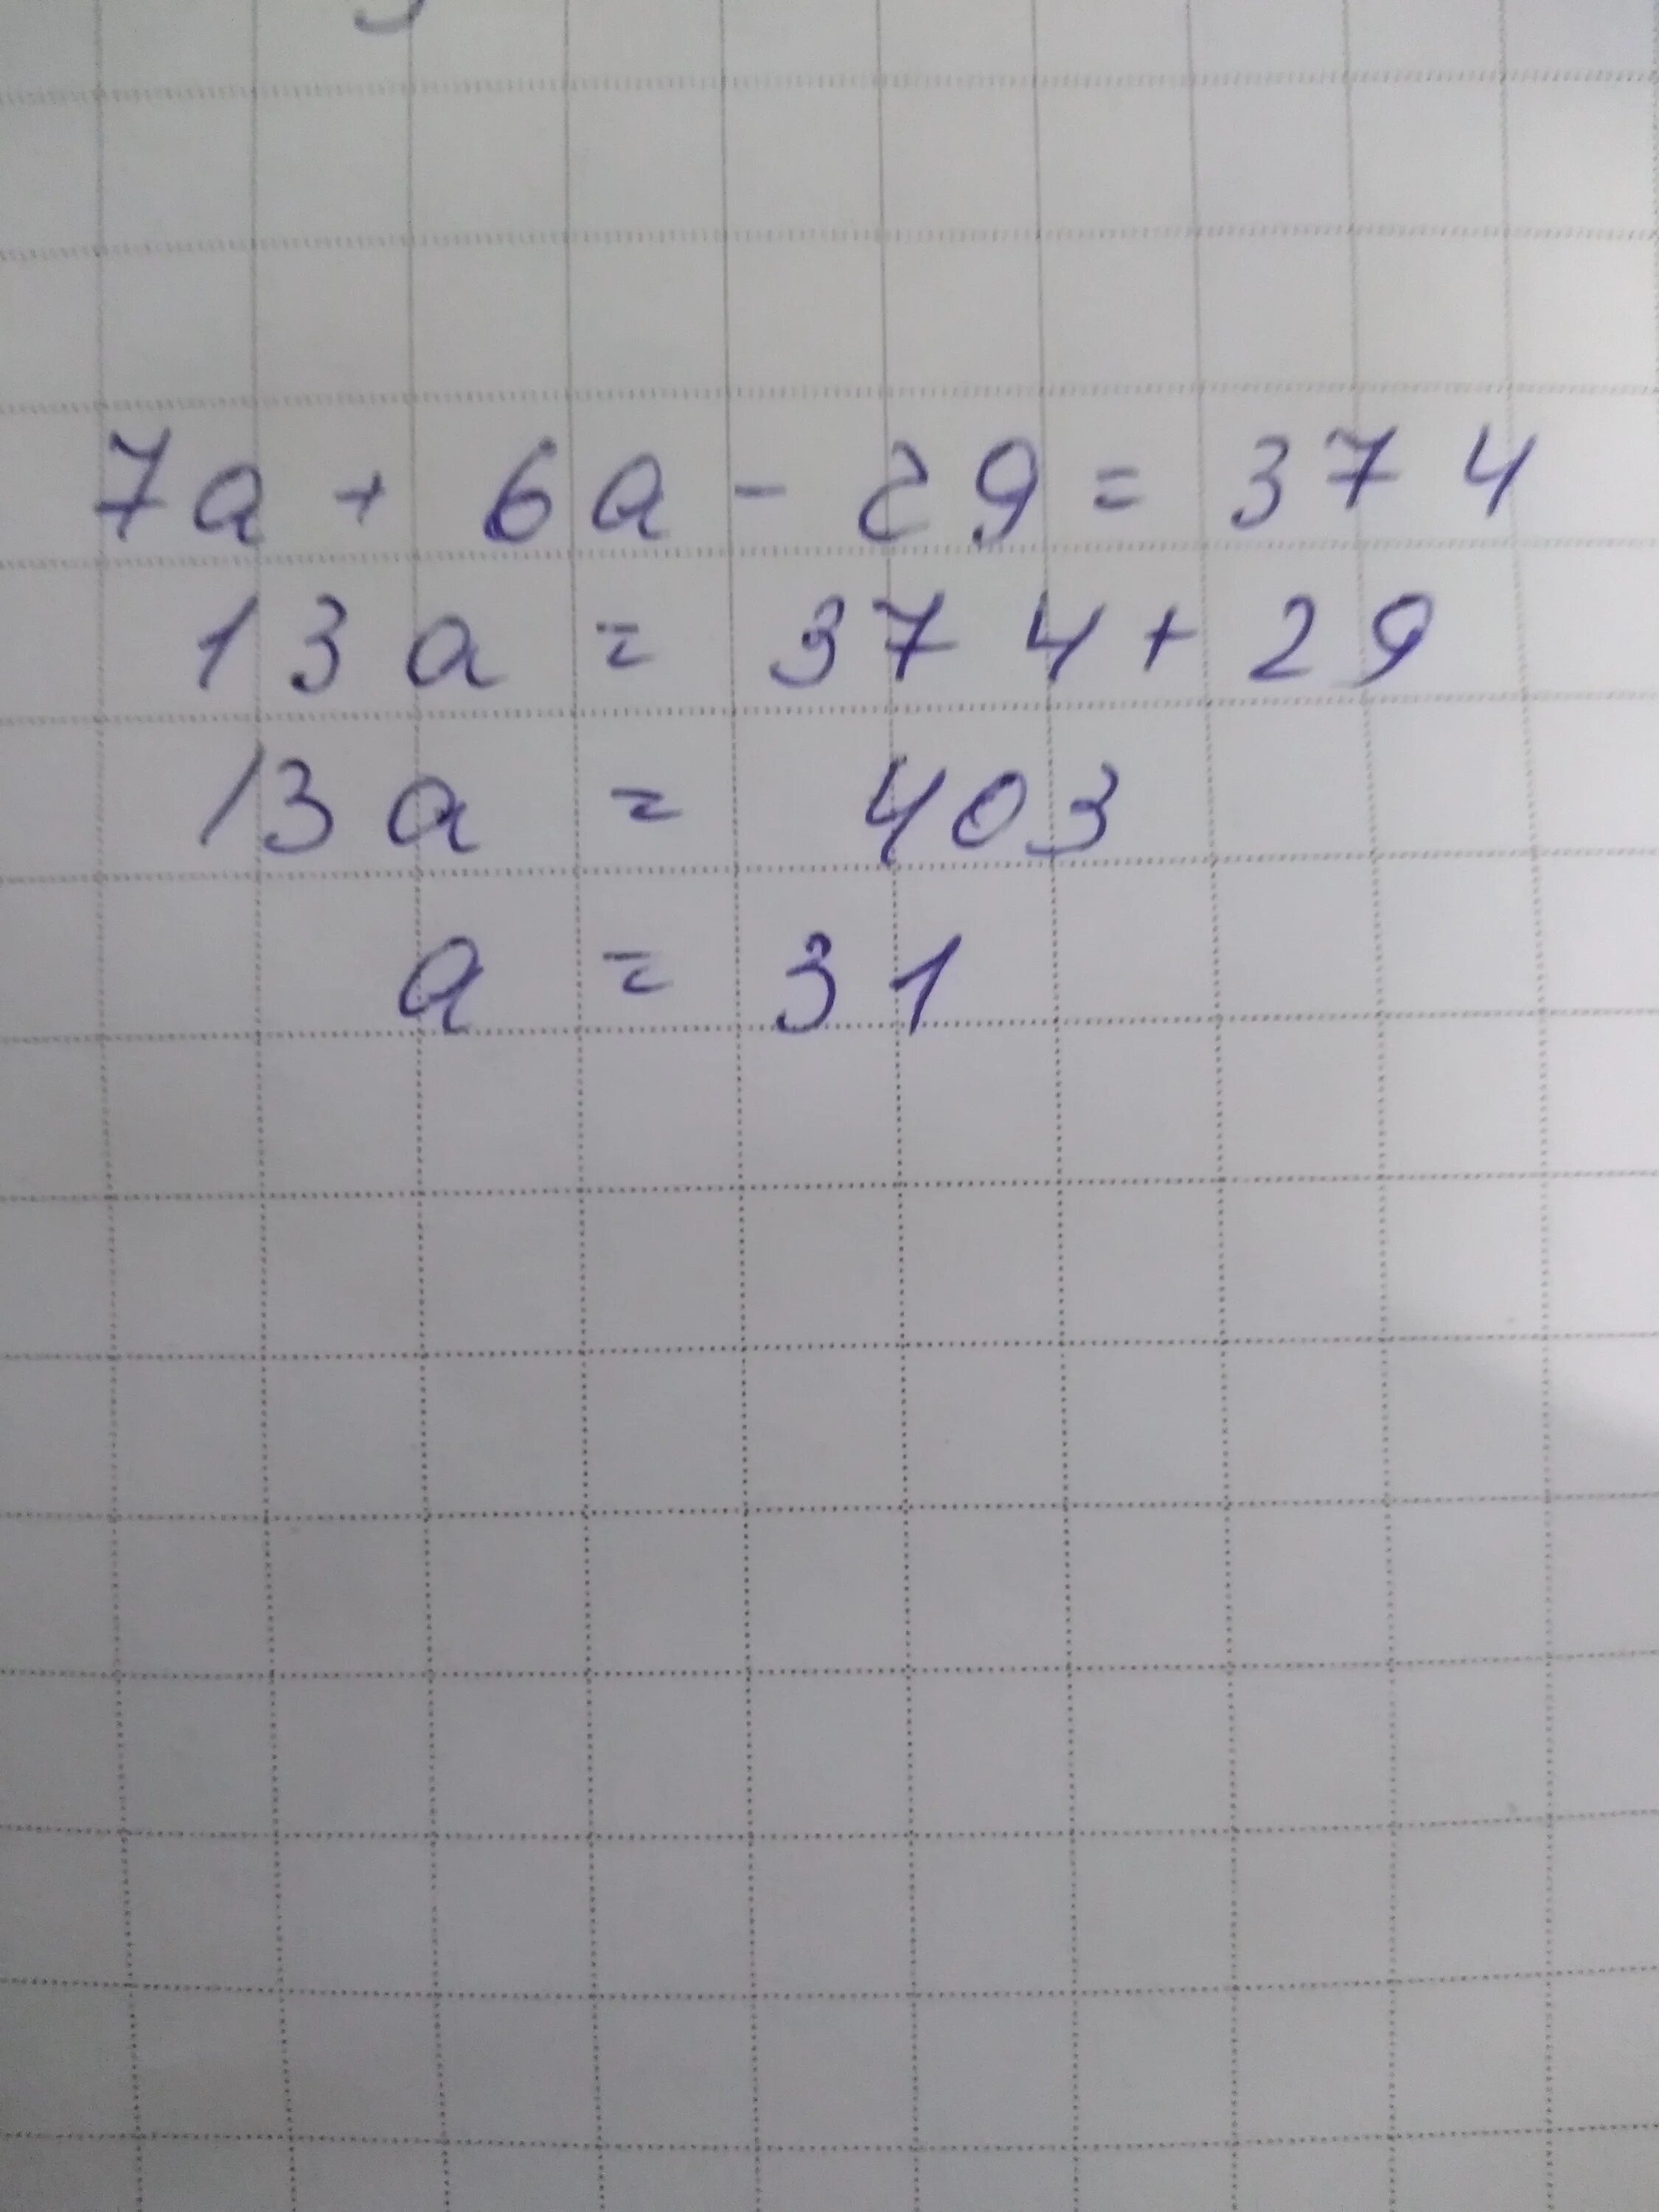 7a + 6a - 29 = 374
13a = 374 + 29
13a = 403
a = 31